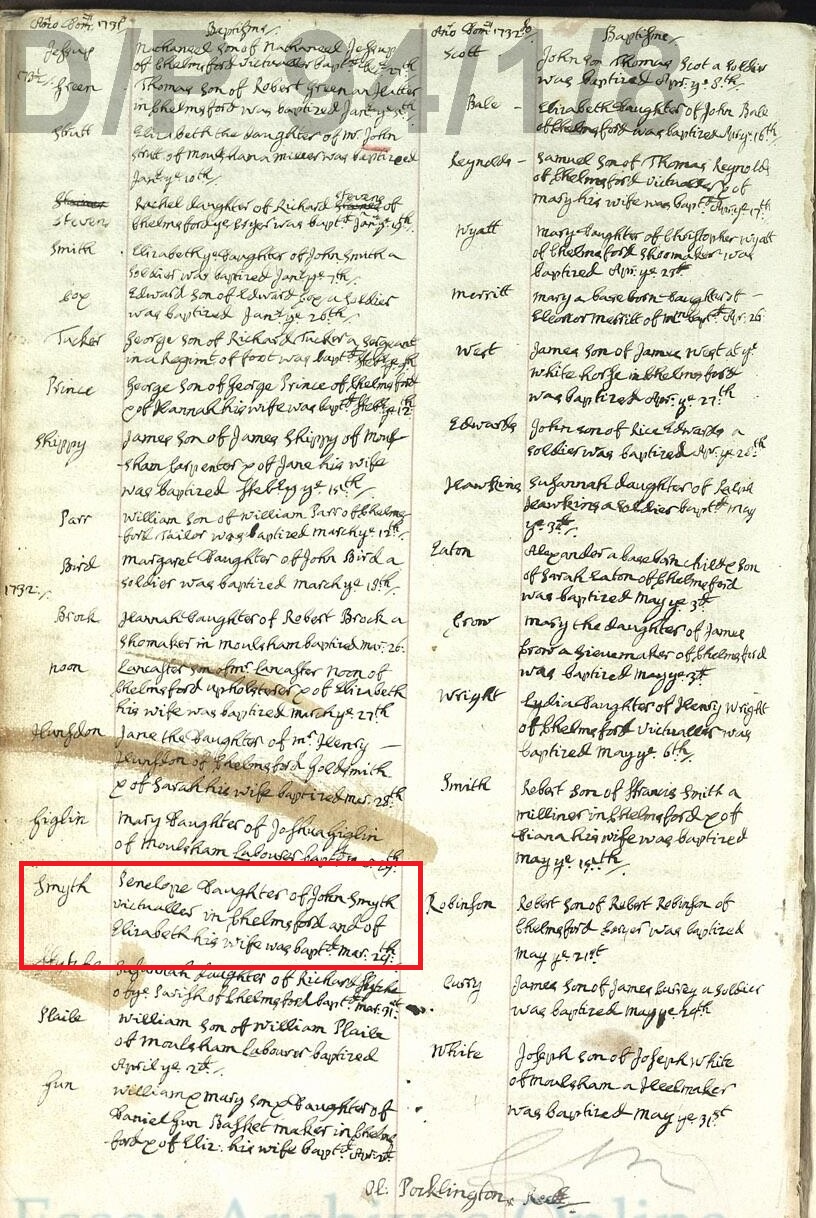 Año Dom: 1731
Baptisms
Jessup
Nathaneel son of Nathaneel Jessup
of Chelmsford victualler bapt. Dec. 27th
1731/2
Green
Thomas son of Robert Green an Hatter
in Chelmsford was baptized Jany ye 5th
Stutt
Elizabeth the daughter of Mr. John
Strutt of Moulsham a miller was baptized
Jany ye 10th
Stevens
Rachel daughter of Richard Stevens of
Chelmsford ye was bapt. Jany ye 19th
Smith
Elizabeth ye daughter of John Smith a
soldier was baptized Jany ye 7th
Cox
Edward son of Edward Cox a soldier
was baptized Jany ye 26th
Tucker
George son of Richard Tucker a Sergeant
in a Regimt of foot was bapt. Feb ye
Prince
George son of George Prince of Chelmsford
& of Hannah his wife was bapt. Feb: ye 12
Shippy
James son of James Shippy of Moul
-sham Carpenter & of Jane his wife
was baptized Febry ye 15th
Parr
William son of William Parr of Chelms
ford Tailor was baptized March ye 12th
Bird
Margaret daughter of John Bird a
soldier was baptized March ye 19th
1732
Brock
Hannah daughter of Robert Brock a
shomaker in Moulsham baptized Mar. 26
Noon
Lancaster son of Mr Lancaster Noon of
Chelmsford upholsterer & of Elizabeth
his wife was baptized March ye 27th
Hunsdon
Jane the daughter of Mr Henry —
Hunsdon of Chelmsford Goldsmith
& of Sarah his wife baptized Mar. 28th
Giglin
Mary daughter of Joshua Giglin
of Moulsham Labourer bapt. 29th
Smyth
Penelope daughter of John Smyth
victualler in Chelmsford and of
Elizabeth his wife was bapt. Mar. 29th
Susannah daughter of Richard
of ye Parish of Chelmsford bapt. Mar. 31st
Plaile
William son of William Plaile
of Moulsham Labourer baptized
April ye 2d
Gun
William & Mary son & daughter of
Daniel Gun Basket maker in Chelms
ford & of Eliz: his wife bapt. Apr.
Año Dom: 1732
Baptisms
Scott
John son Thomas Scot a soldier
was baptized Apr. ye 8th
Bale -
Elizabeth daughter of John Bale
of Chelmsford was baptized Apr ye 16th
Reynolds -
Samuel son of Thomas Reynolds
of Chelmsford victualler & of
Mary his wife was bapt. Apr. ye 17th
Wyatt
Mary daughter of Christopher Wyatt
of Chelmsford shoomaker was
baptized Apr. ye 23d
Merritt
Mary a base born daughter of —
Eleonor Merritt of bapt. Apr. 26
West
James son of James West at ye
white horse in Chelmsford
was baptized Apr. ye 27th
Edwards
John son of Rice Edwards a
soldier was baptized Apr. ye 28th
Hawkins
Susannah daughter of Ralph
Hawkins a soldier bapt. May
ye 3d
Eaton
Alexander a base born child & son
of Sarah Eaton of Chelmsford
was baptized May ye 3d
Crow
Mary the daughter of James
Crow a sievemaker of Chelmsford
was baptized May ye 3d
Wright
Lydia daughter of Henry Wright
of Chelmsford victualler was
baptized May ye 6th
Smith
Robert son of Francis Smith a
milliner in Chelmsford & of
Diana his wife was baptized
May ye 15th
Robinson
Robert son of Robert Robinson of
Chelmsford Sawyer was baptized
May ye 21st
Curry
James son of James Curry a soldier
was baptized May ye 24th
White
Joseph son of Joseph White
of Moulsham a Heelmaker
was baptized May ye 31st
Ol: Pocklington, Rect
D/P 94/1/8
Essex Archives Online